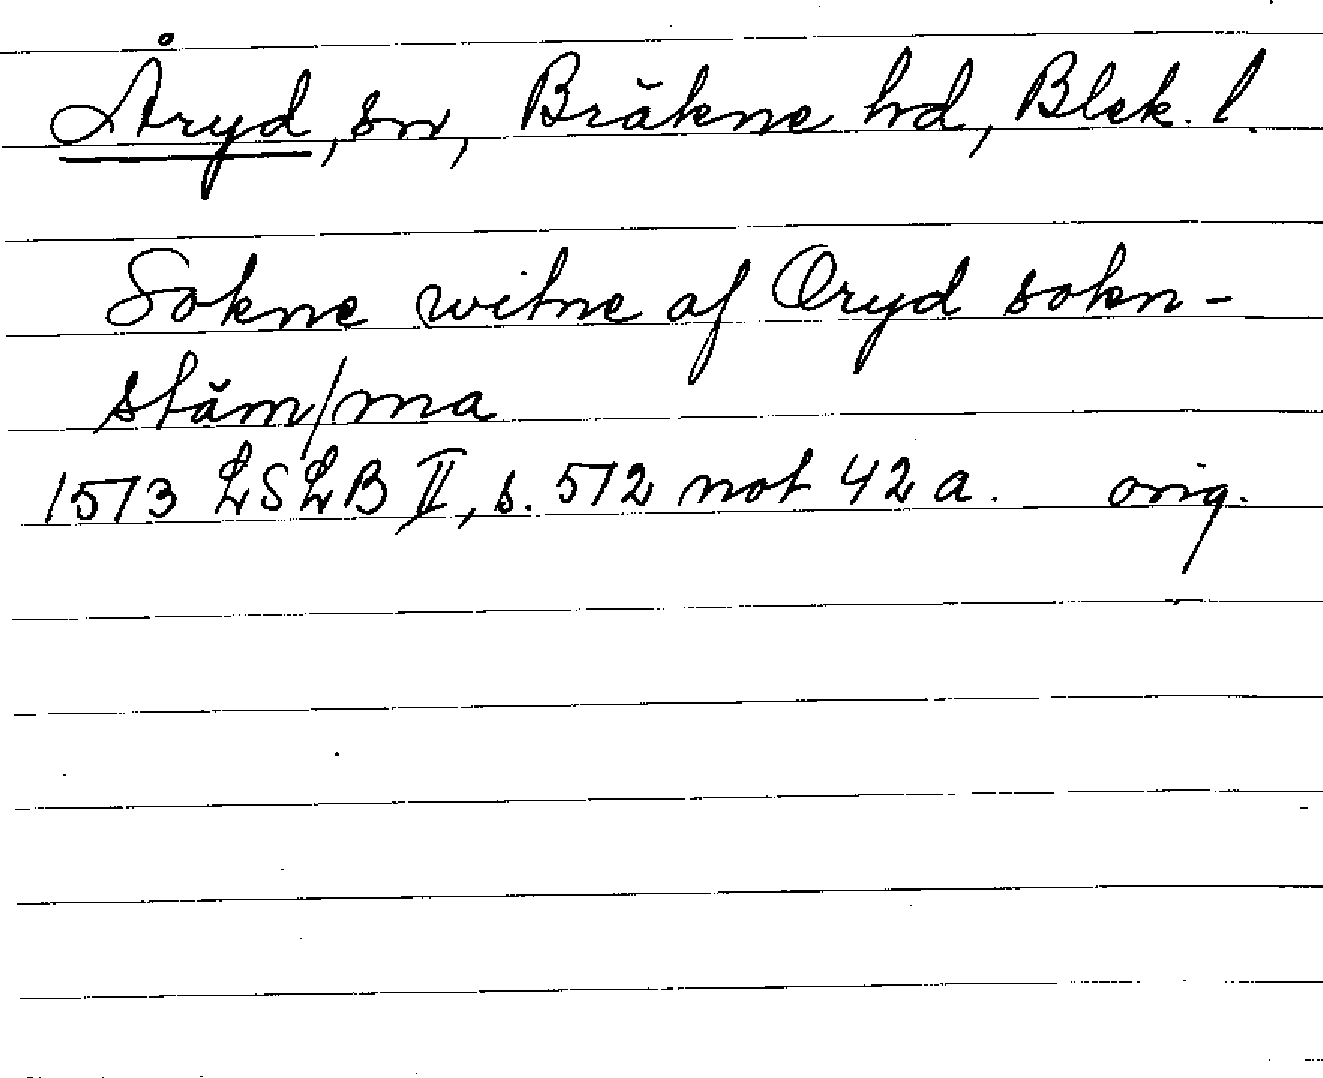 Åryd, sn, Bräkne hd, Blek. l.
Sokne witne af Oryd sokn-
stäm/ma
1573 LSLB II, s. 572 not 42 a. orig.